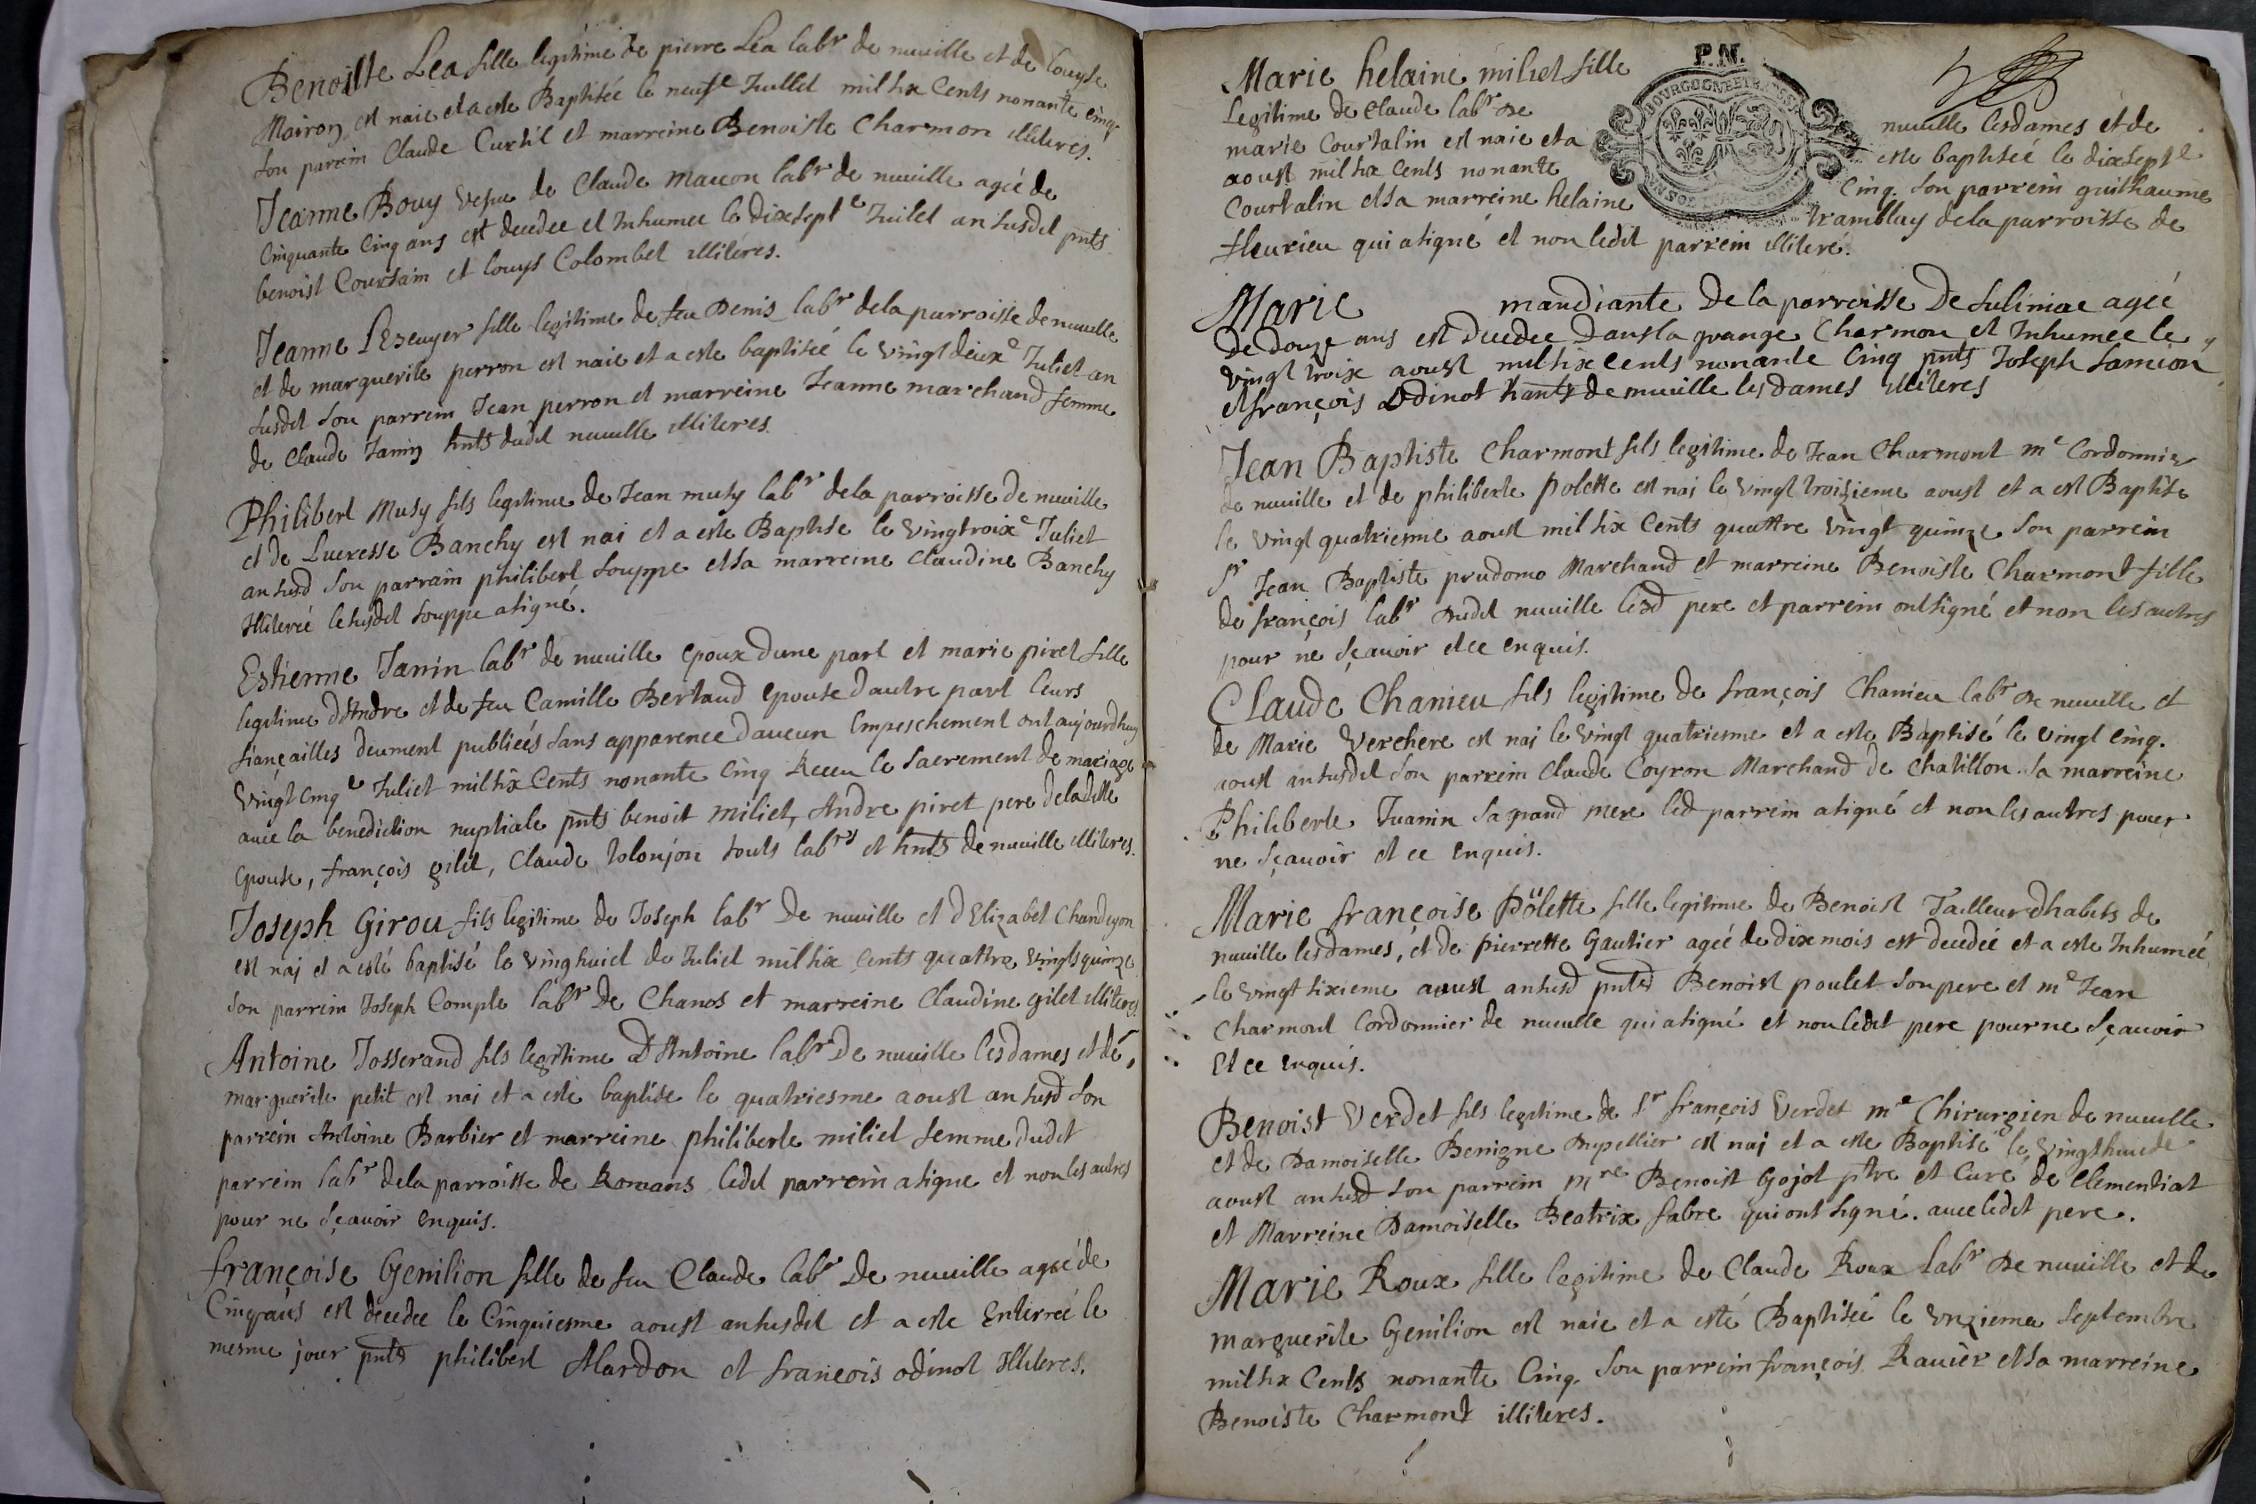 Benoiste Lea fille legitime de pierre Lea labr de nuuille et de louyse
Mairon est naie et a este Baptisée le neufe Juillet mil six Cents nonante cinq
son parrein Claude Curtil et marreine Benoiste Charmon illiteres.
Jeanne Bouy vefue de Claude Maccon labr de nuuille ageé de
Cinquante Cinq ans est decedee et Inhumee le dixsepte Juilet an susdit pnts
benoist Courtain et louys Colombet illiteres.
Jeanne LEscuyer fille legitime de feu Denis labr dela parroisse de nuuille
et de marguerite perron est naie et a este baptiseé le vingt deuxe Juliet an
susdit son parrein Jean perron et marreine Jeanne marchand femme
de Claude Janin hnts dudit nuuille illiteres.
Philibert Musy fils legitime de Jean musy labr dela parroisse de nuuille
et de Lucresse Banchy est nai et a este Baptise le vingtroixe Juliet
an susd son parrain philibert souppe et sa marreine Claudine Banchy
Illitereé le susdit souppe a signé.
Estienne Janin labr de nuuille epoux dune part et marie piret fille
legitime dAndre et de feu Camille Bertaud epouse dautre part leurs
fiançailles deument publieés sans apparence daucun Empeschement ont aujourdhuy
vingt cinqe Juliet mil six Cents nonante Cinq Receu le sacrement de mariage
auec la benediction nuptiale pnts benoit Miliet, Andre piret pere de ladite
epouse, françois gilet, Claude tolonjon touts labrs et hnts de nuuille illiteres.
Joseph Girou fils legitime de Joseph labr De nuuille et dElizabet Chandeyon
est naj et a esté baptisé le vinghuict de Juliet mil six cents quattre vingts quinze
son parrein Joseph Comple labr de Chanos et marreine Claudine gilet illiteres
Antoine Josserand fils legitime DAntoine labr De nuuille les dames et de
marguerite petit est nai et a este baptise le quatriesme aoust an susd son
parrein Antoine Barbier et marreine philiberte miliet femme dudit
parrein labr dela parroisse de Romans ledit parrein a signe et non les autres
pour ne sçauoir enquis.
françoise Genilion fille de feu Claude labr De nuuille ageé de
Cinq ans est decedee le Cinquiesme aoust an susdit et a este Enterreé le
mesme jour pnts philibert Alardon et françois odinot Illiteres.
Marie helaine miliet fille
Legitime de Claude labr De nuuille les dames et de
marie Courtalin est naie et a este baptiseé le dixsepte
aoust mil six cents nonante Cinq. son parrein guilhaume
Courtalin et sa marreine helaine tramblay dela parroisse de
fleurieu qui a signé et non ledit parrein illiteré.
P.N.
BOURGOGNE ET BRESSE
Marie mandiante De la parroisse De suliniac ageé
De douze ans est Decedee Dans la grange Charmon et Inhumee le
vingt troix aoust mil six cents nonante Cinq pnts Joseph samion
et françois Odinot hants de nuuille les dames illiteres
Jean Baptiste Charmont fils legitime de Jean Charmont me Cordonnier
de nuuille et de philiberte polette est nai le vingt troizieme aoust et a est Baptise
le vingt quatriesme aoust mil six Cents quattre vingt quinze son parrein
sr Jean Baptiste prudomo Marchand et marreine Benoiste Charmont fille
de françois labr Dudit nuuille lesd pere et parrein ont signé et non les autres
pour ne sçauoir et ce enquis.
Claude Chanieu fils legitime de françois Chanieu labr De nuuille et
de Marie Verchere est naj le vingt quatriesme et a este Baptisé le vingt cinq.
aoust an susdit son parrein Claude Coyron Marchand de Chatillon. sa marreine
Philiberte Juanin sa grand mere led parrein a signé et non les autres pour
ne sçauoir et ce enquis.
Marie françoise Pölette fille legitime de Benoist Tailleur dhabits de
nuuille les dames, et de pierrette Gautier ageé de dix mois est decedeé et a este Inhumeé
le vingt sixieme aoust an susd pnts Benoist poulet son pere et me Jean
Charmont Cordonnier de nuuille qui a signé et non ledit pere pour ne sçauoir
Et ce enquis.
Benoist Verdet fils legitime de sr françois Verdet me Chirurgien de nuuille
et de Damoiselle Benigne Dupellier est naj et a este Baptise le vingthuict
aoust an susd son parrein mre Benoist Gojot ptre et Curé de Clementiat
et Marreine Damoiselle Beatrix fabre qui ont signé. auec ledit pere.
Marie Roux fille legitime de Claude Roux labr De nuuille et de
marguerite Genilion est naie et a esté Baptiseé le vnzieme septembre
mil six Cents nonante Cinq. son parrein françois Rauier et sa marreine
Benoiste Charmont illiteres.